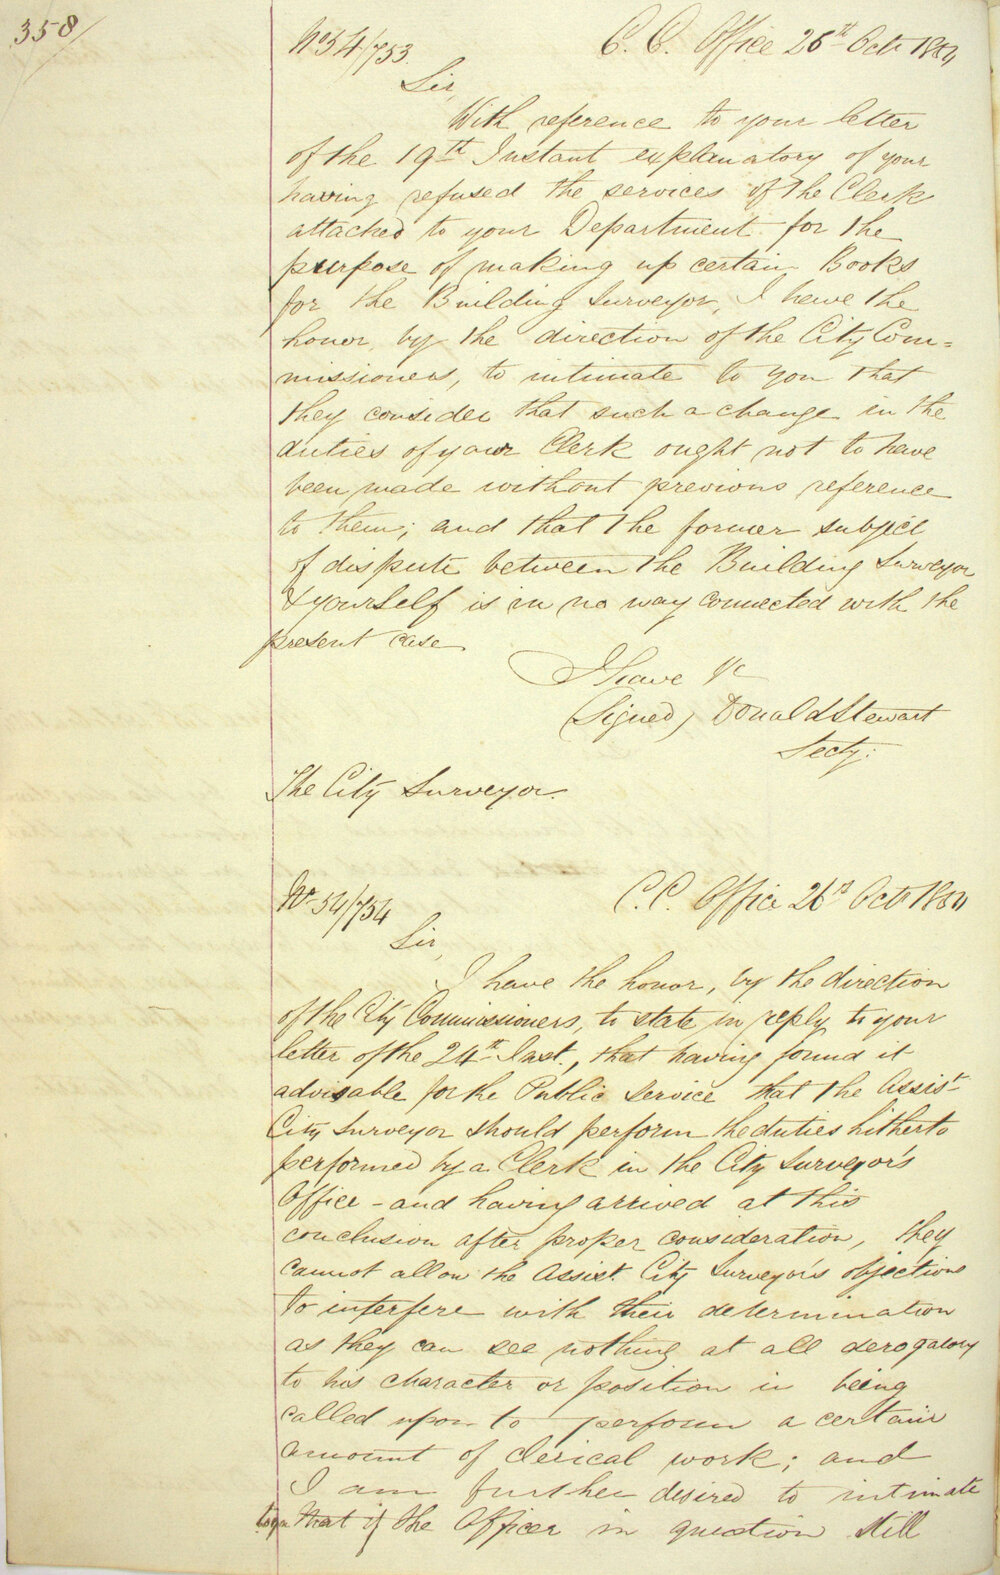 358
No 54/753. C. C. Office 26th Octr 1854
Sir,
With reference to your letter
of the 19th Instant explanatory of your
having refused the services of the Clerk
attached to your Department for the
purpose of making up certain Books
for the Building Surveyor, I have the
honor, by the direction of the City Com=
missioners, to intimate to you that
they consider that such a change in the
duties of your Clerk ought not to have
been made without previous reference
to them; and that the former subject
of dispute between the Building Surveyor
& yourself is in no way connected with the
present case.
I have &c
(Signed) Donald Stewart
Secty:
The City Surveyor.
No 54/754 C. C. Office 26th Octr 1854
Sir,
I have the honor, by the direction
of the City Commissioners, to state in reply to your
letter of the 24th Inst., that having found it
advisable for the Public Service that the Assist
City Surveyor should perform the duties hitherto
performed by a Clerk in the City Surveyor's
Office - and having arrived at this
conclusion after proper consideration, they
cannot allow the Assist. City Surveyor's objections
to interfere with their determination
as they can see nothing at all derogatory
to his character or position in being
called upon to perform a certain
amount of clerical work; and
I am further desired to intimate
to you that if the Officer in question still